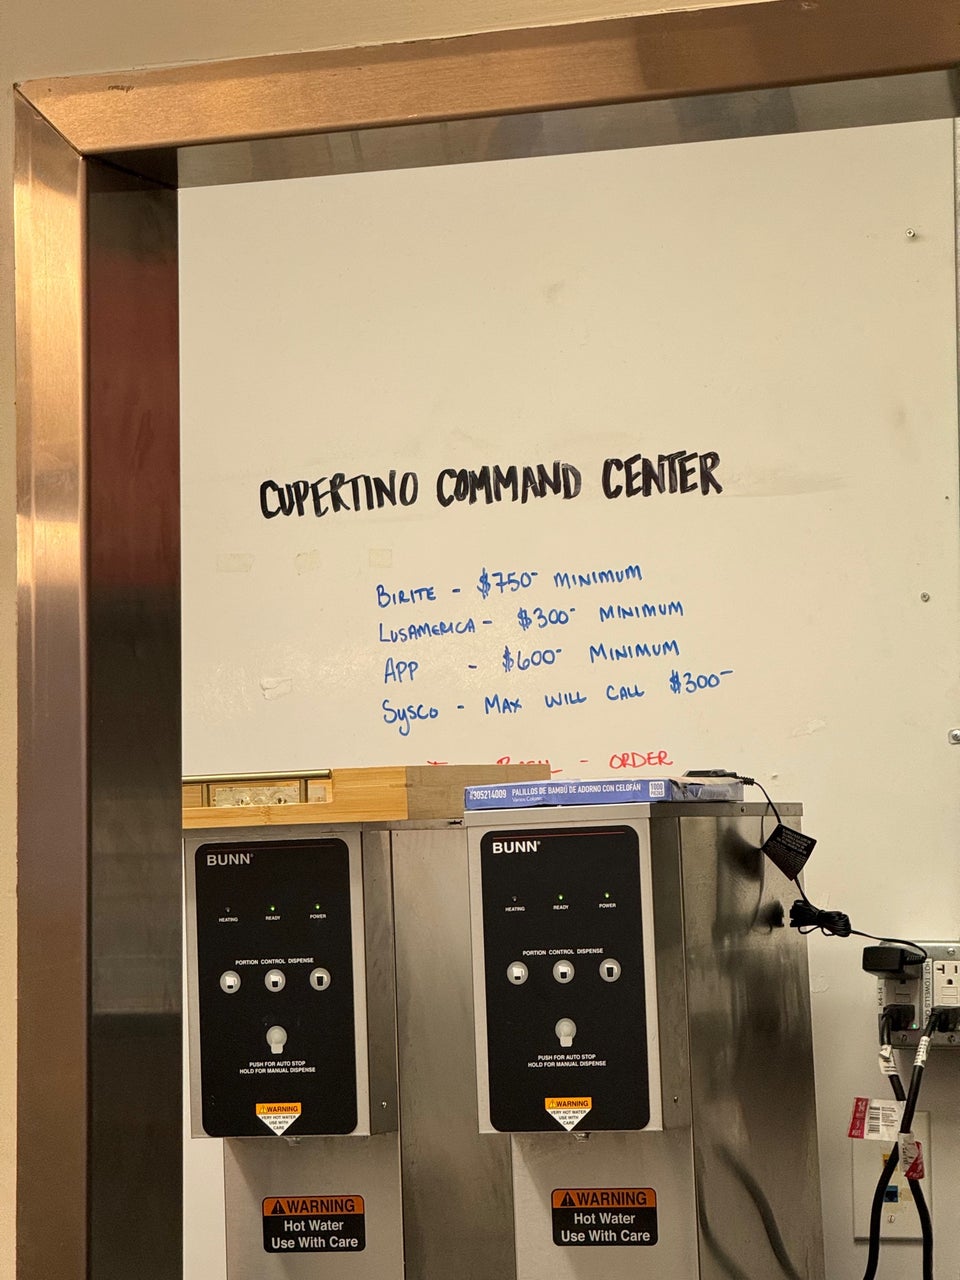 CUPERTINO COMMAND CENTER
BIRITE - $750- MINIMUM
LUSAMERICA - $300- MINIMUM
APP - $600- MINIMUM
SYSCO - MAX WILL CALL $300-
- ORDER
#305214009 PALILLOS DE BAMBÚ DE ADORNO CON CELOFÁN 1000
BUNN
HEATING READY POWER
PORTION CONTROL DISPENSE
PUSH FOR AUTO STOP
HOLD FOR MANUAL DISPENSE
WARNING
VERY HOT WATER
USE WITH
CARE
WARNING
Hot Water
Use With Care
BUNN
HEATING READY POWER
PORTION CONTROL DISPENSE
PUSH FOR AUTO STOP
HOLD FOR MANUAL DISPENSE
WARNING
VERY HOT WATER
USE WITH
CARE
WARNING
Hot Water
Use With Care
K4-14